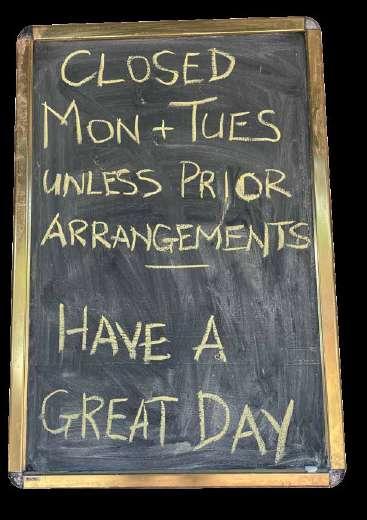 CLOSED
MON + TUES
UNLESS PRIOR
ARRANGEMENTS
HAVE A
GREAT DAY